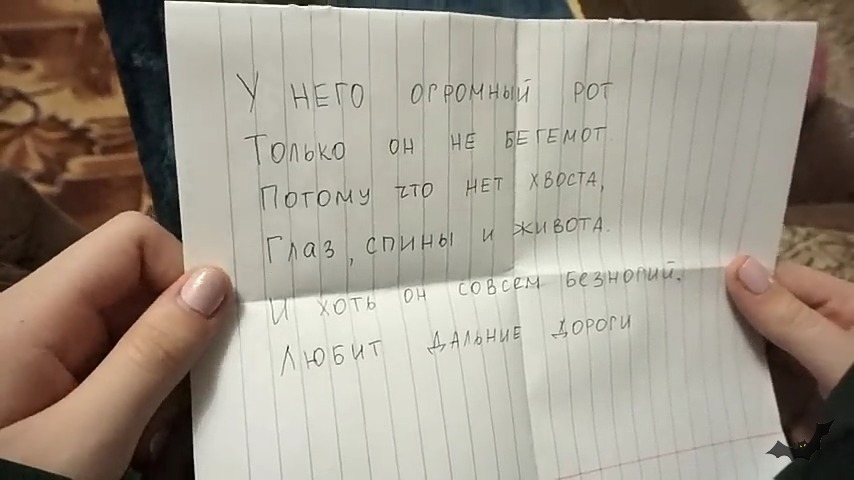 У НЕГО ОГРОМНЫЙ РОТ
ТОЛЬКО ОН НЕ БЕГЕМОТ
ПОТОМУ ЧТО НЕТ ХВОСТА,
ГЛАЗ, СПИНЫ И ЖИВОТА.
И ХОТЬ ОН СОВСЕМ БЕЗНОГИЙ.
ЛЮБИТ ДАЛЬНИЕ ДОРОГИ